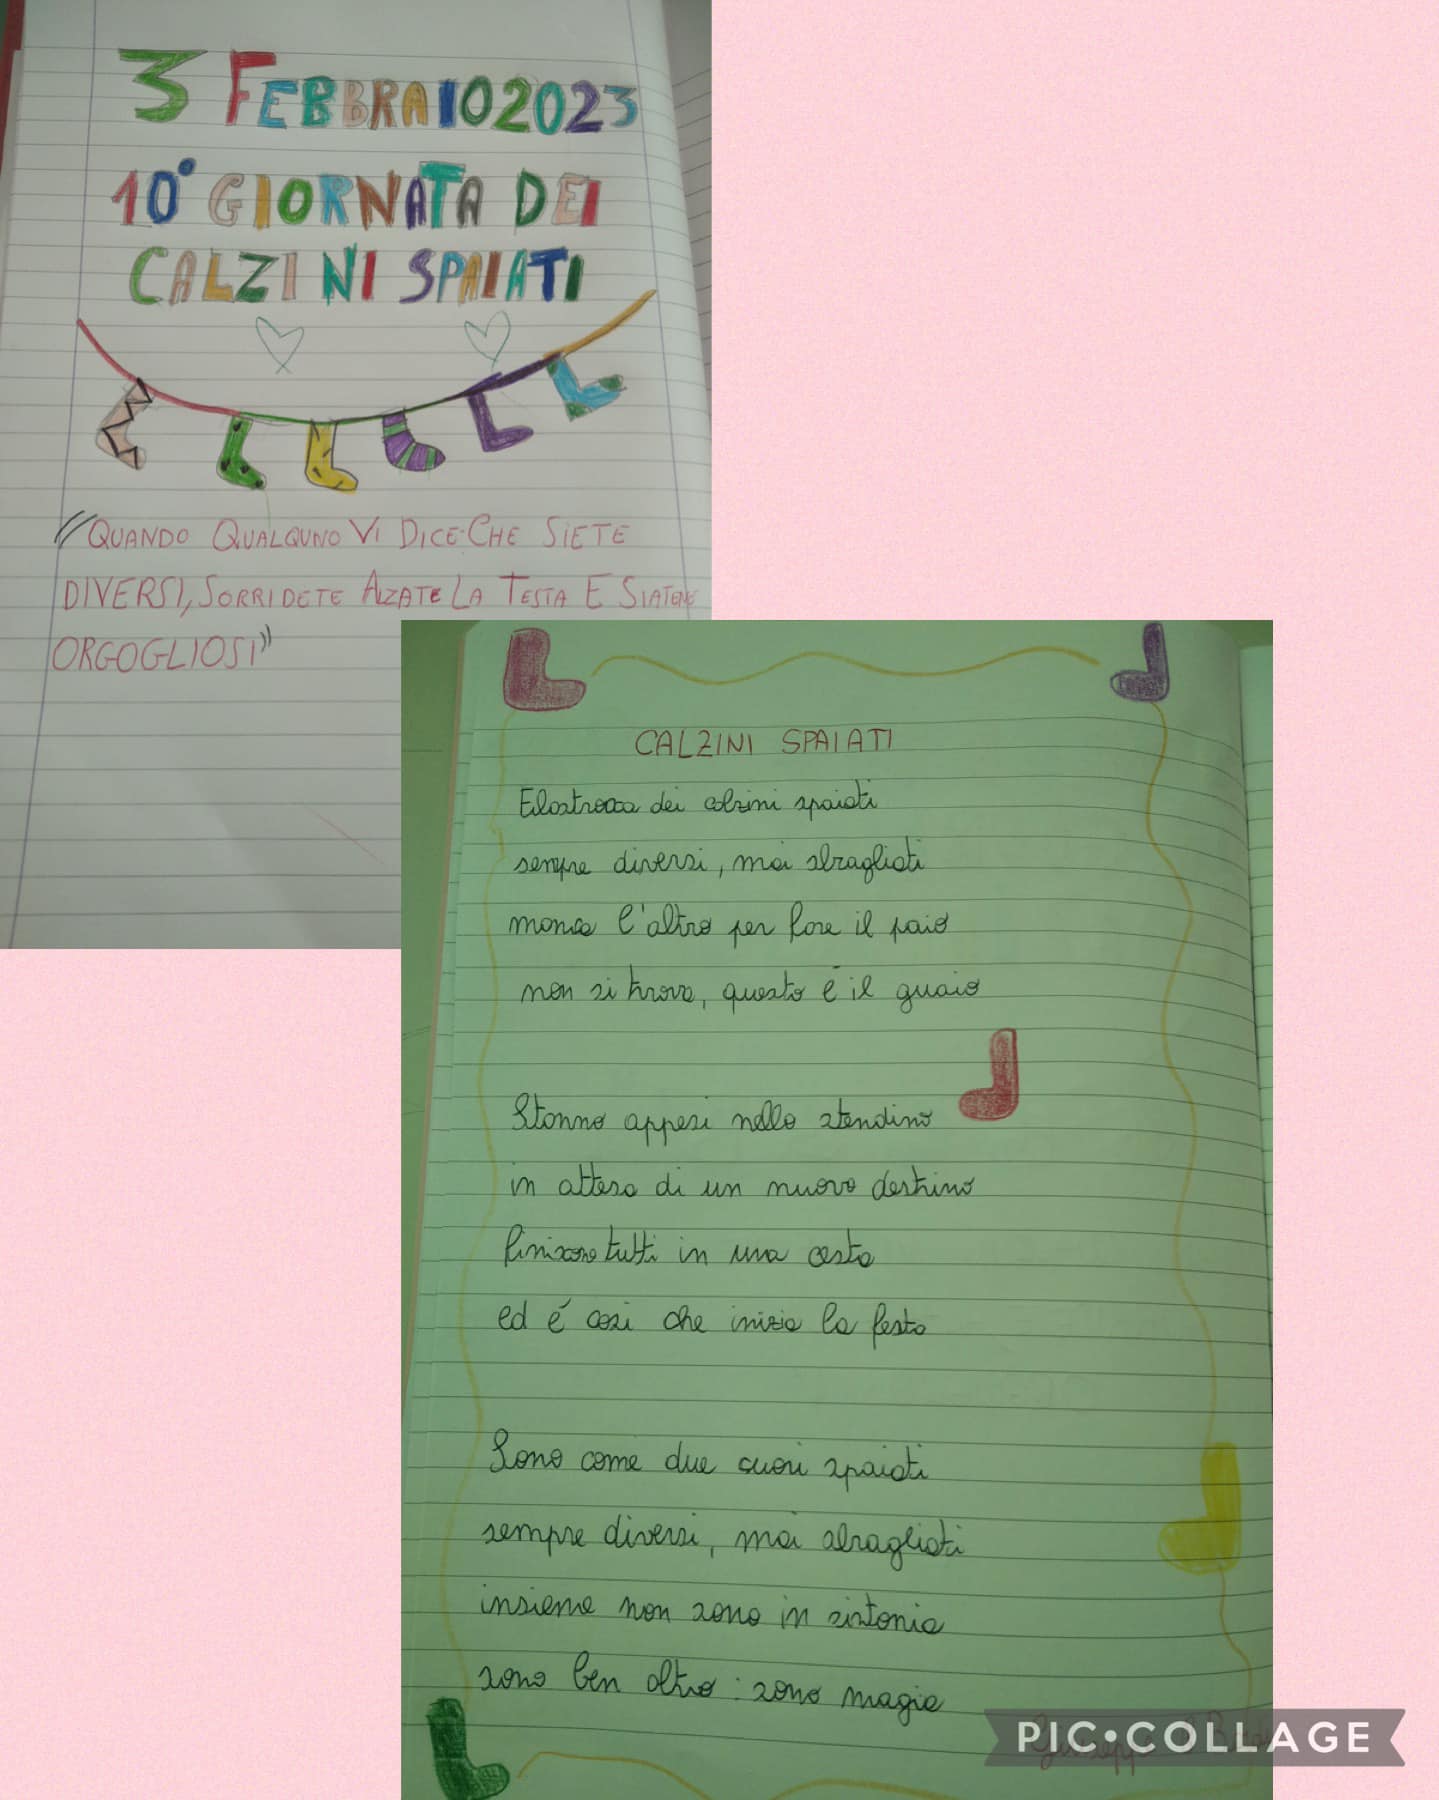 3 FEBBRAIO 2023
10° GIORNATA DEI
CALZINI SPAIATI
"QUANDO QUALQUNO VI DICE CHE SIETE
DIVERSI, SORRIDETE ALZATE LA TESTA E SIATENE
ORGOGLIOSI"
CALZINI SPAIATI
Filastrocca dei calzini spaiati
sempre diversi, mai sbagliati
manca l'altro per fare il paio
non si trova, questo è il guaio
Stanno appesi nello stendino
in attesa di un nuovo destino
finiscono tutti in una cesta
ed é cosi che inizia la festa
Sono come due cuori spaiati
sempre diversi, mai sbagliati
insieme non sono in sintonia
sono ben altro : sono magia
Giuseppe
PIC•COLLAGE